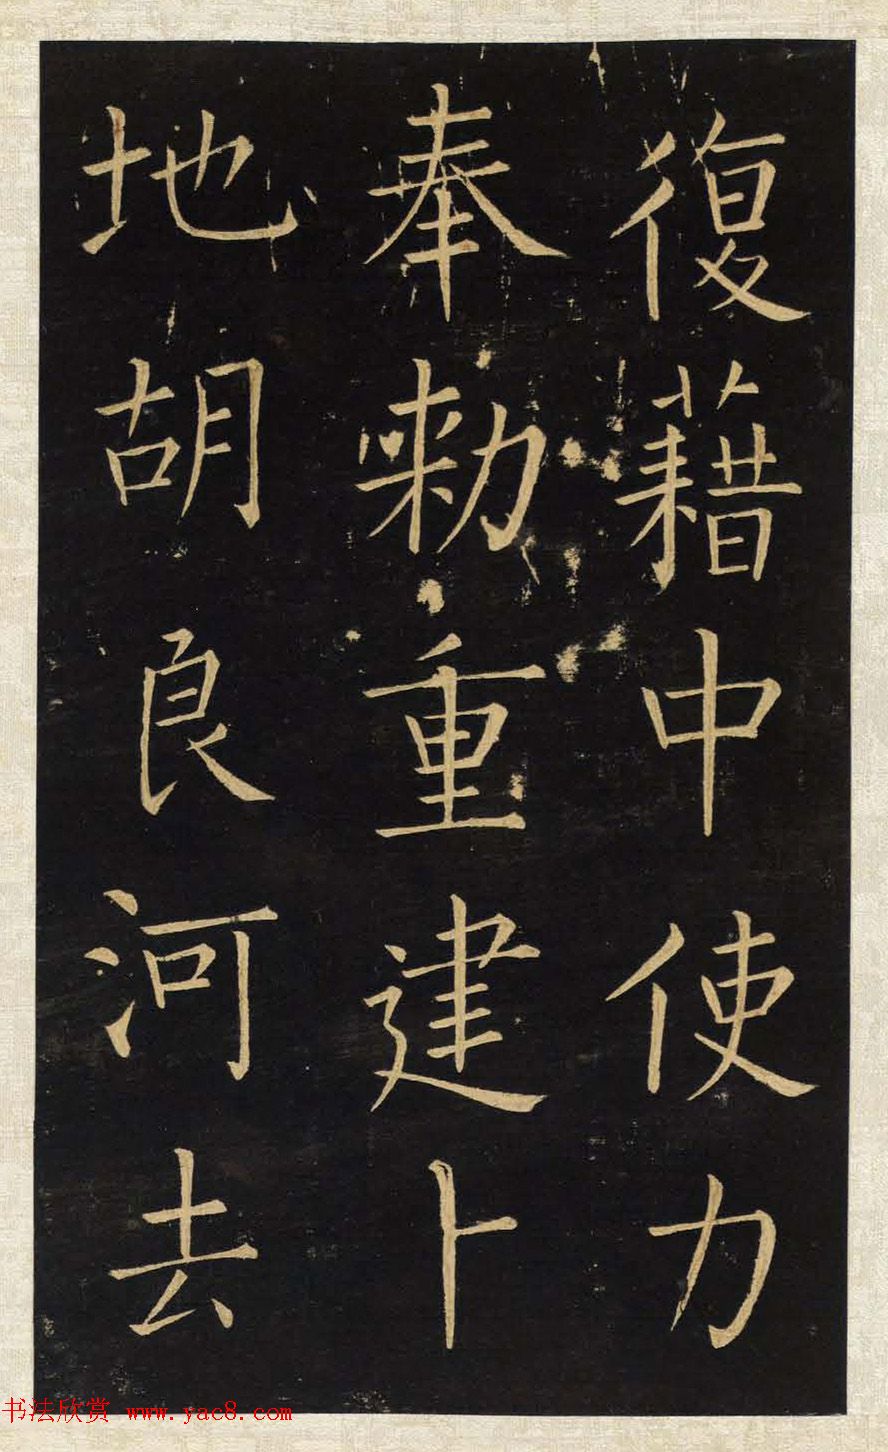 復藉中使力
奉勑重建卜
地胡良河去
书法欣赏 www.yac8.com